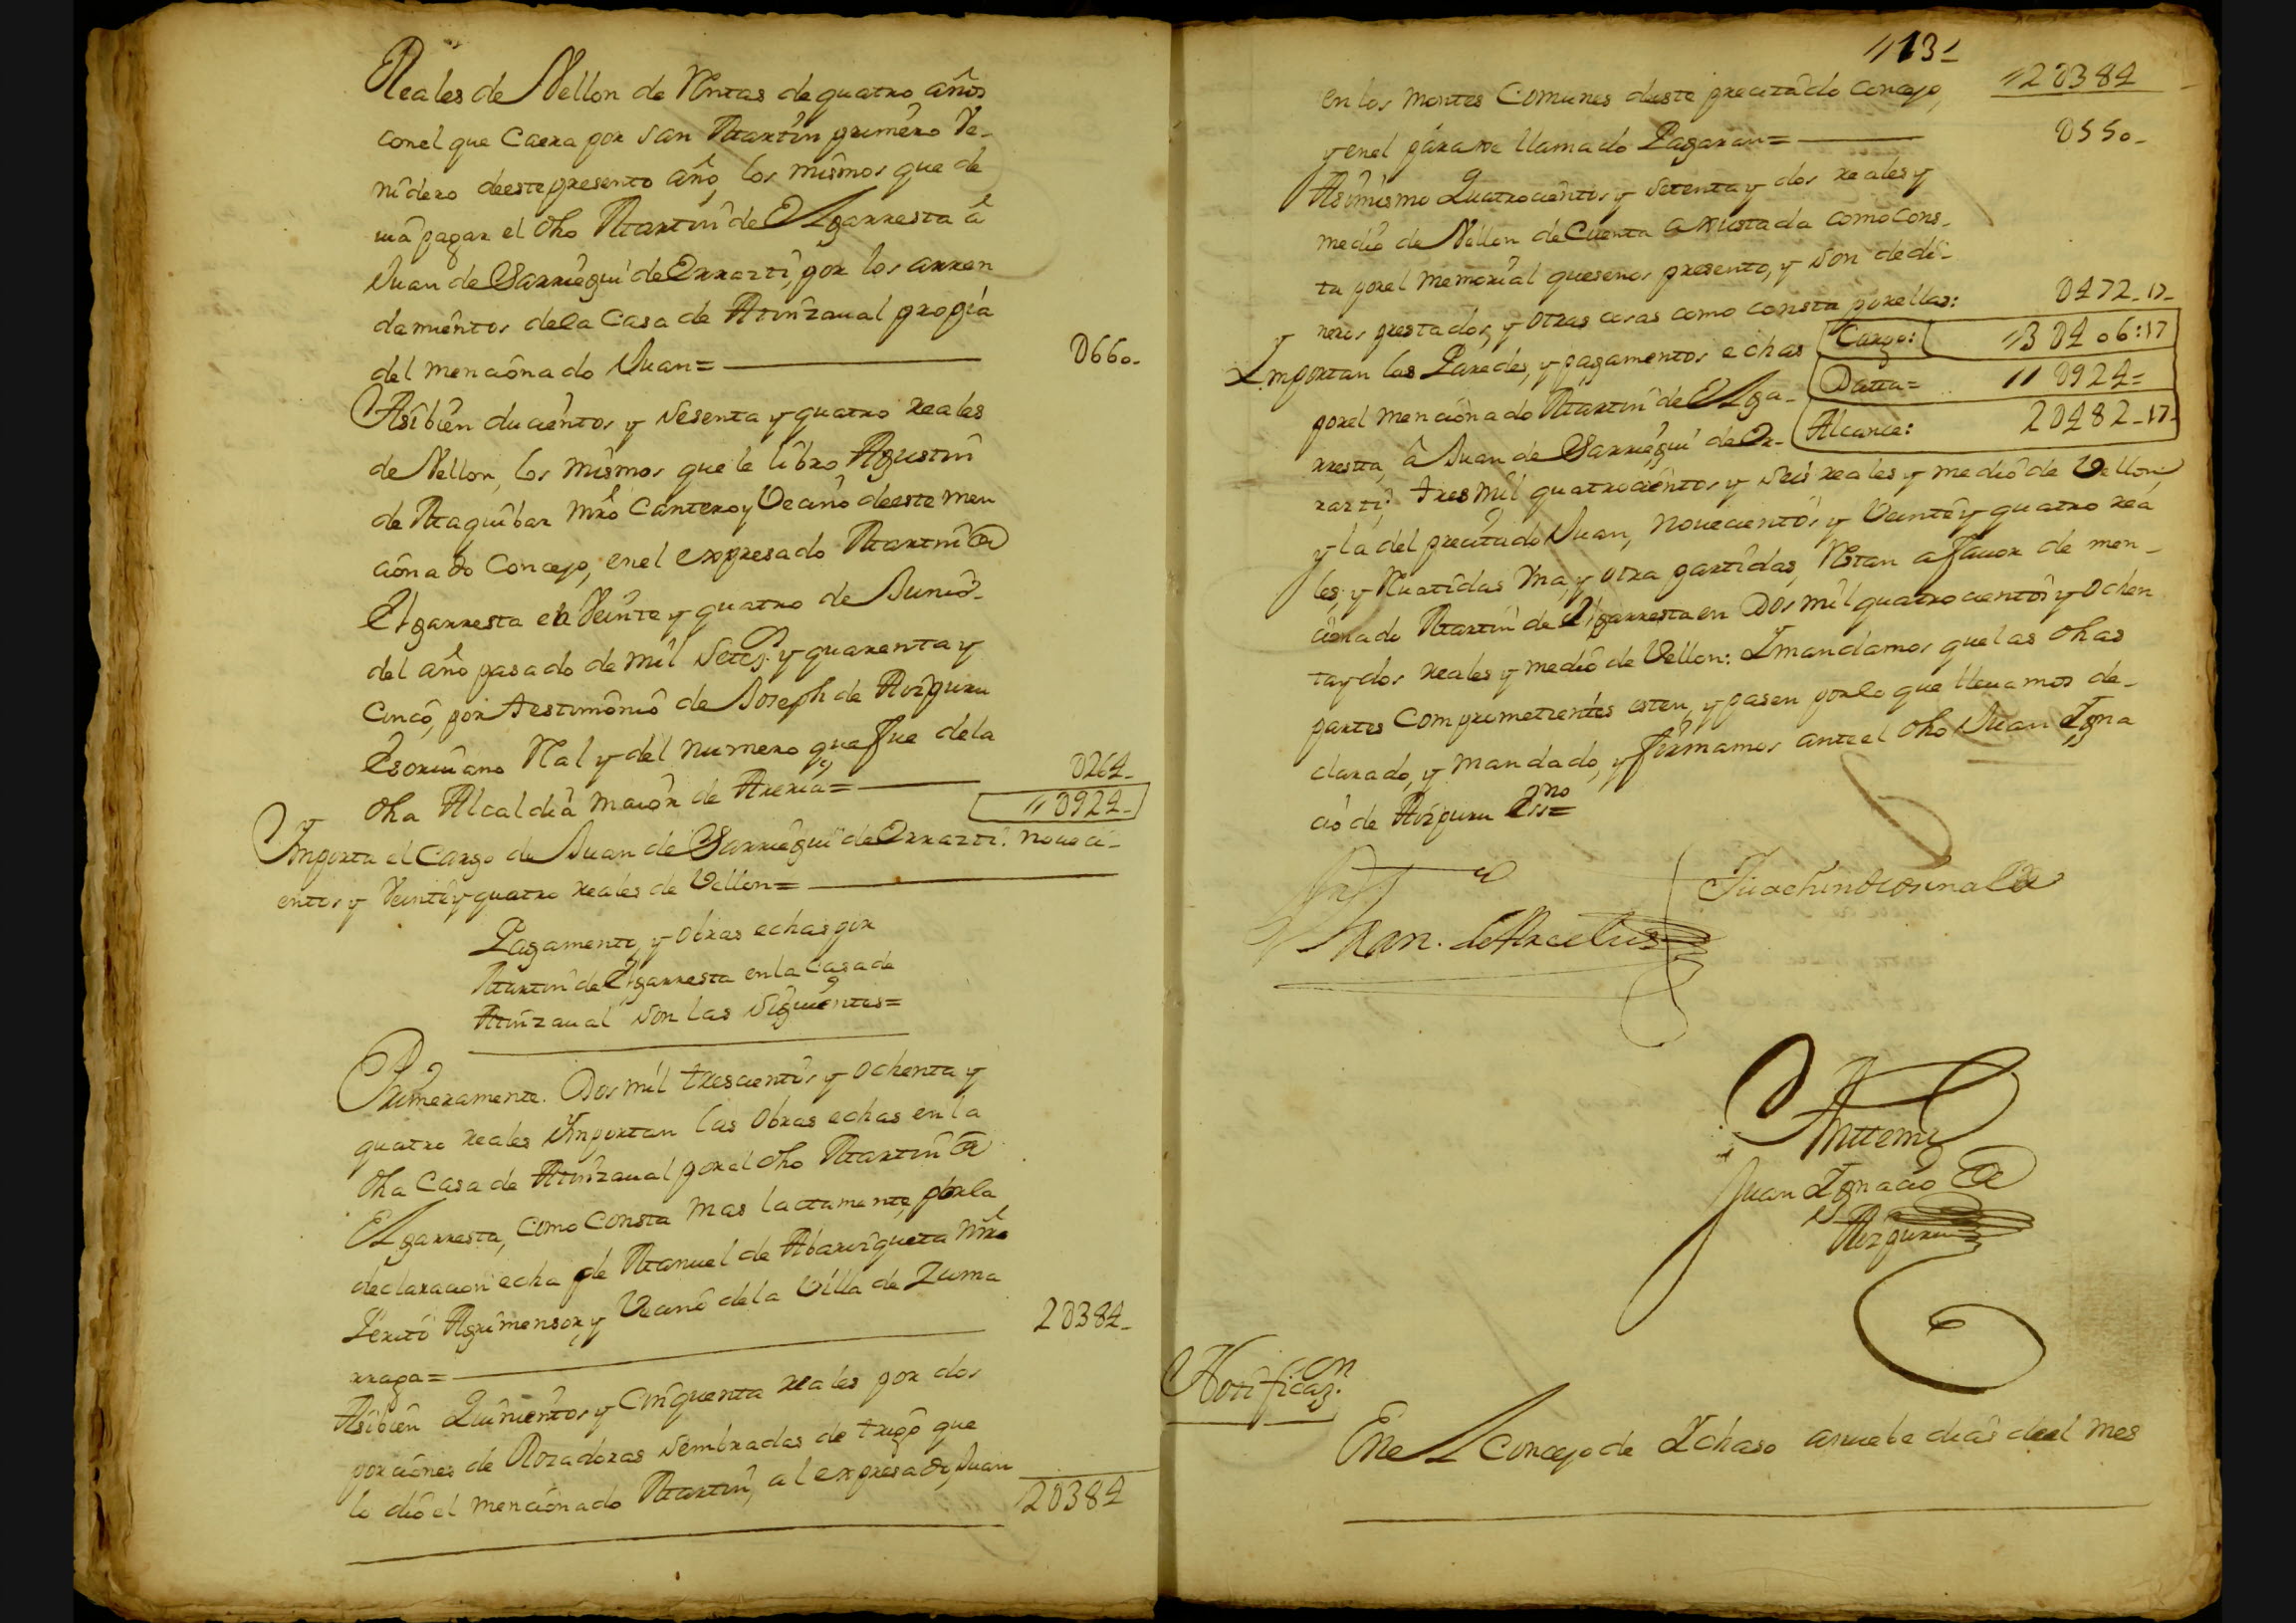 Reales de Vellon de Rentas de quatro años
con el que Caera por San Martin primero Ve-
nidero de este presente año, los mismos que de
via pagar el dho Martin de Elgarresta â
Juan de Sarriegui de Errazti, por los arren
damientos de la Casa de Atinzaual propia
del mencionado Juan= 0660-
Asibien ducientos y Sesenta y quatro reales
de Vellon, los mismos que le libro Agustin
de Maquibar Mro Cantero y Vecino de este men
cionado Concejo, en el expresado Martin de
Elgarresta en Veinte y quatro de Junio-
del año pasado de mil Setes. y quarenta y
Cinco, por testimonio de Joseph de Aizpuru
Escriuano Rl y del numero que fue de la
dha Alcaldia maior de Areria= 0264-
11 0924-
Importa el Cargo de Juan de Sarriegui de Errazti: noueci-
entos y Veinte y quatro reales de Vellon=
Pagamento, y obras echas por
Martin de Elgarresta en la Casa de
Atinzaual son las Siguientes=
Primeramente. Dos mil trescientos y ochenta y
quatro reales Importan las obras echas en la
dha Casa de Atinzaual por el dho Martin de
Elgarresta, como Consta mas lactamente, por la
declaracion echa de Manuel de Abarizqueta Mro
Perito Agrimensor, y Vecino de la Villa de Zuma
rraga= 20384-
Asibien Quinientos y Cinquenta reales por dos
porciones de Rozaduras sembradas de trigo que
le dio el mencionado Martin, al expresado, Juan
20384
113-
11 20384
en los montes Comunes deeste precitado Concejo,
y en el paraxe llamado Pagarau= 0550-
Asimismo Quatrocientos y Setenta y dos reales y
medio de Vellon de Cuenta axustada como cons-
ta por el memorial que se nos presento, y son de di-
neros prestados, y otras cosas como consta por ellas: 0472-17-
Importan las Paredes, y pagamentos echas Cargo: 11 30406:17
por el mencionado Martin de Elga- Datta= 11 0924=
rresta, â Juan de Sarriegui de Er- Alcance: 20482-17-
razti: tres mil quatrocientos y seis reales y medio de Vellon,
y la del precitado Juan, nouecientos y Veinte y quatro rea
les, y Ruatidas Vna, y otra partidas, Restan a fauor de men-
cionado Martin de Elgarresta en Dos mil quatrocientos y ochen
ta y dos reales y medio de Vellon: I mandamos que las dhas
partes Comprometientes esten, y pasen por lo que lleuamos de-
clarado, y mandado, y firmamos ante el dho Juan Igna
cio de Aizpuru Essno=
Fran. de Arcelus
Juachin de
Anttemi
Juan Ignacio de
Aizpuru
Notificazon.
En el Concejo de Ichaso anuebe dias deel mes